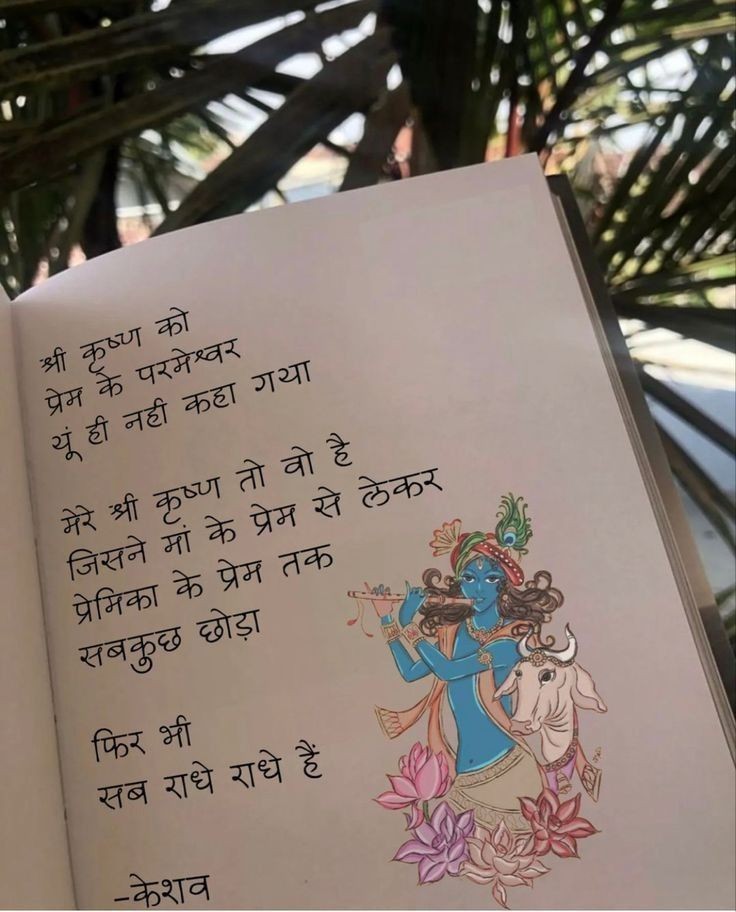 श्री कृष्ण को
प्रेम के परमेश्वर
यूं ही नही कहा गया
मेरे श्री कृष्ण तो वो है
जिसने मां के प्रेम से लेकर
प्रेमिका के प्रेम तक
सबकुछ छोड़ा
फिर भी
सब राधे राधे हैं
-केशव